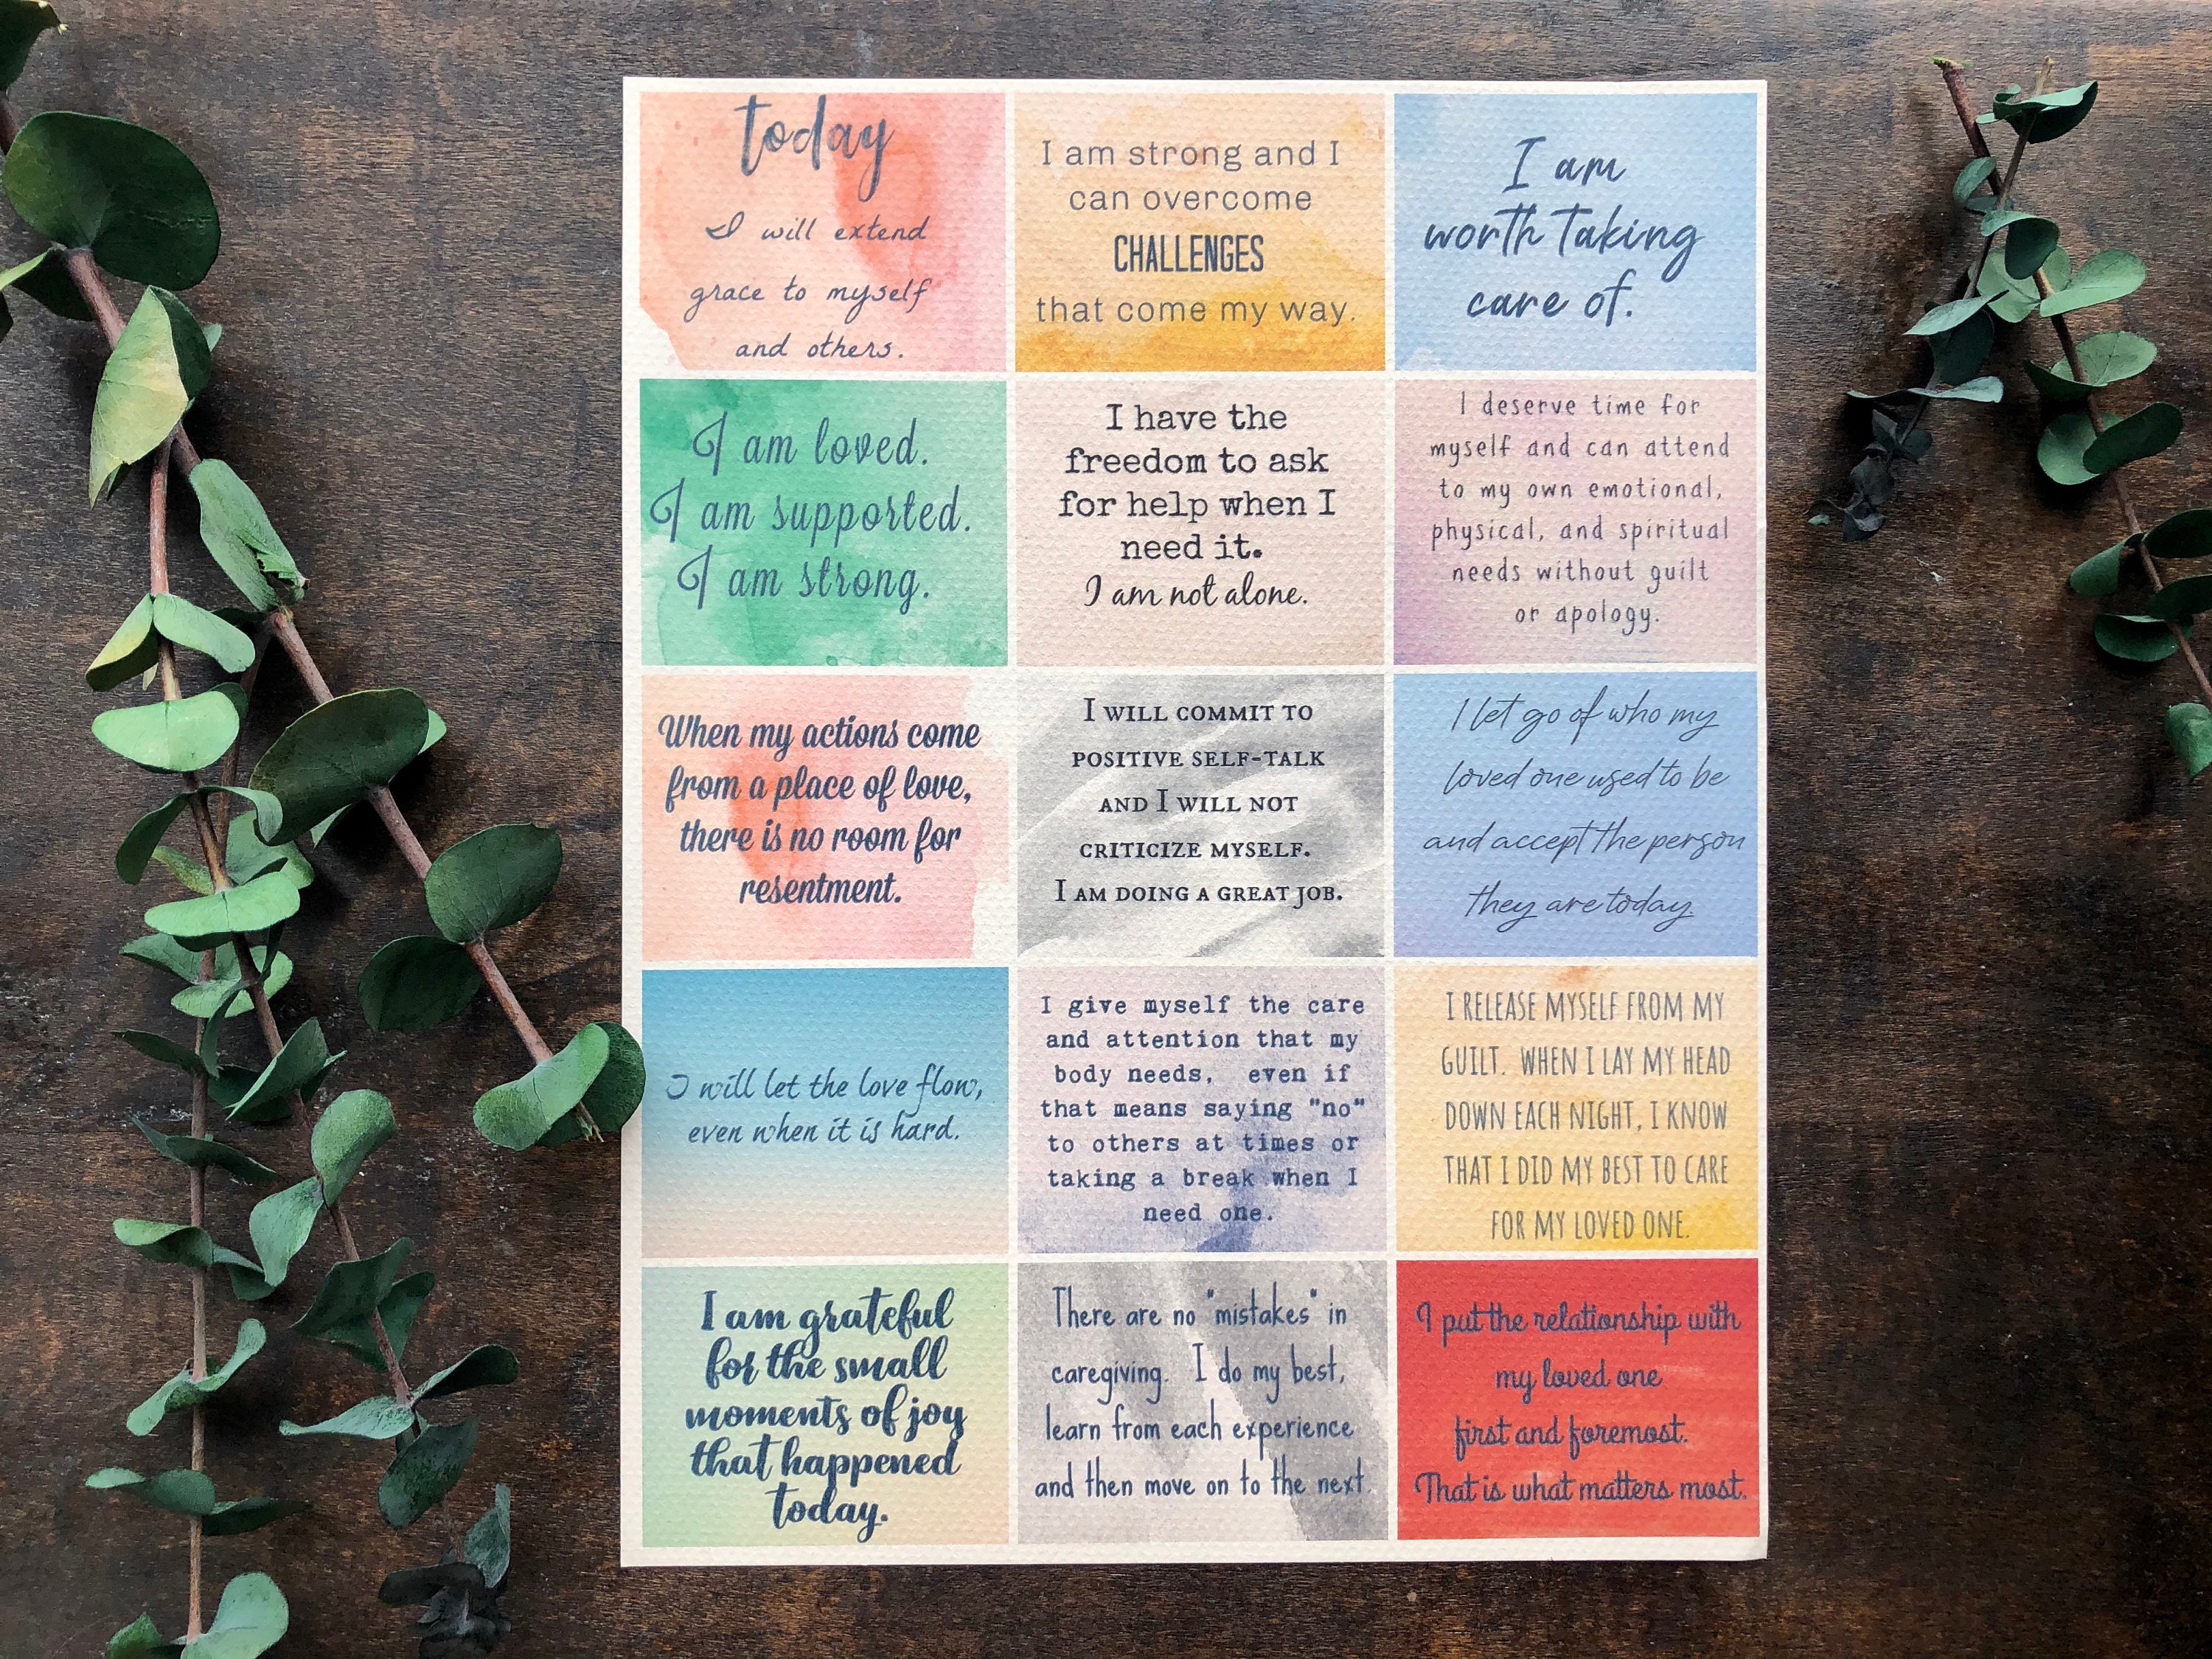 today
I will extend
grace to myself
and others.
I am strong and I
can overcome
CHALLENGES
that come my way.
I am
worth taking
care of.
I am loved.
I am supported.
I am strong.
I have the
freedom to ask
for help when I
need it.
I am not alone.
I deserve time for
myself and can attend
to my own emotional,
physical, and spiritual
needs without guilt
or apology.
When my actions come
from a place of love,
there is no room for
resentment.
I WILL COMMIT TO
POSITIVE SELF-TALK
AND I WILL NOT
CRITICIZE MYSELF.
I AM DOING A GREAT JOB.
I let go of who my
loved one used to be
and accept the person
they are today.
I will let the love flow,
even when it is hard.
I give myself the care
and attention that my
body needs, even if
that means saying "no"
to others at times or
taking a break when I
need one.
I RELEASE MYSELF FROM MY
GUILT. WHEN I LAY MY HEAD
DOWN EACH NIGHT, I KNOW
THAT I DID MY BEST TO CARE
FOR MY LOVED ONE.
I am grateful
for the small
moments of joy
that happened
today.
There are no "mistakes" in
caregiving. I do my best,
learn from each experience
and then move on to the next.
I put the relationship with
my loved one
first and foremost.
That is what matters most.